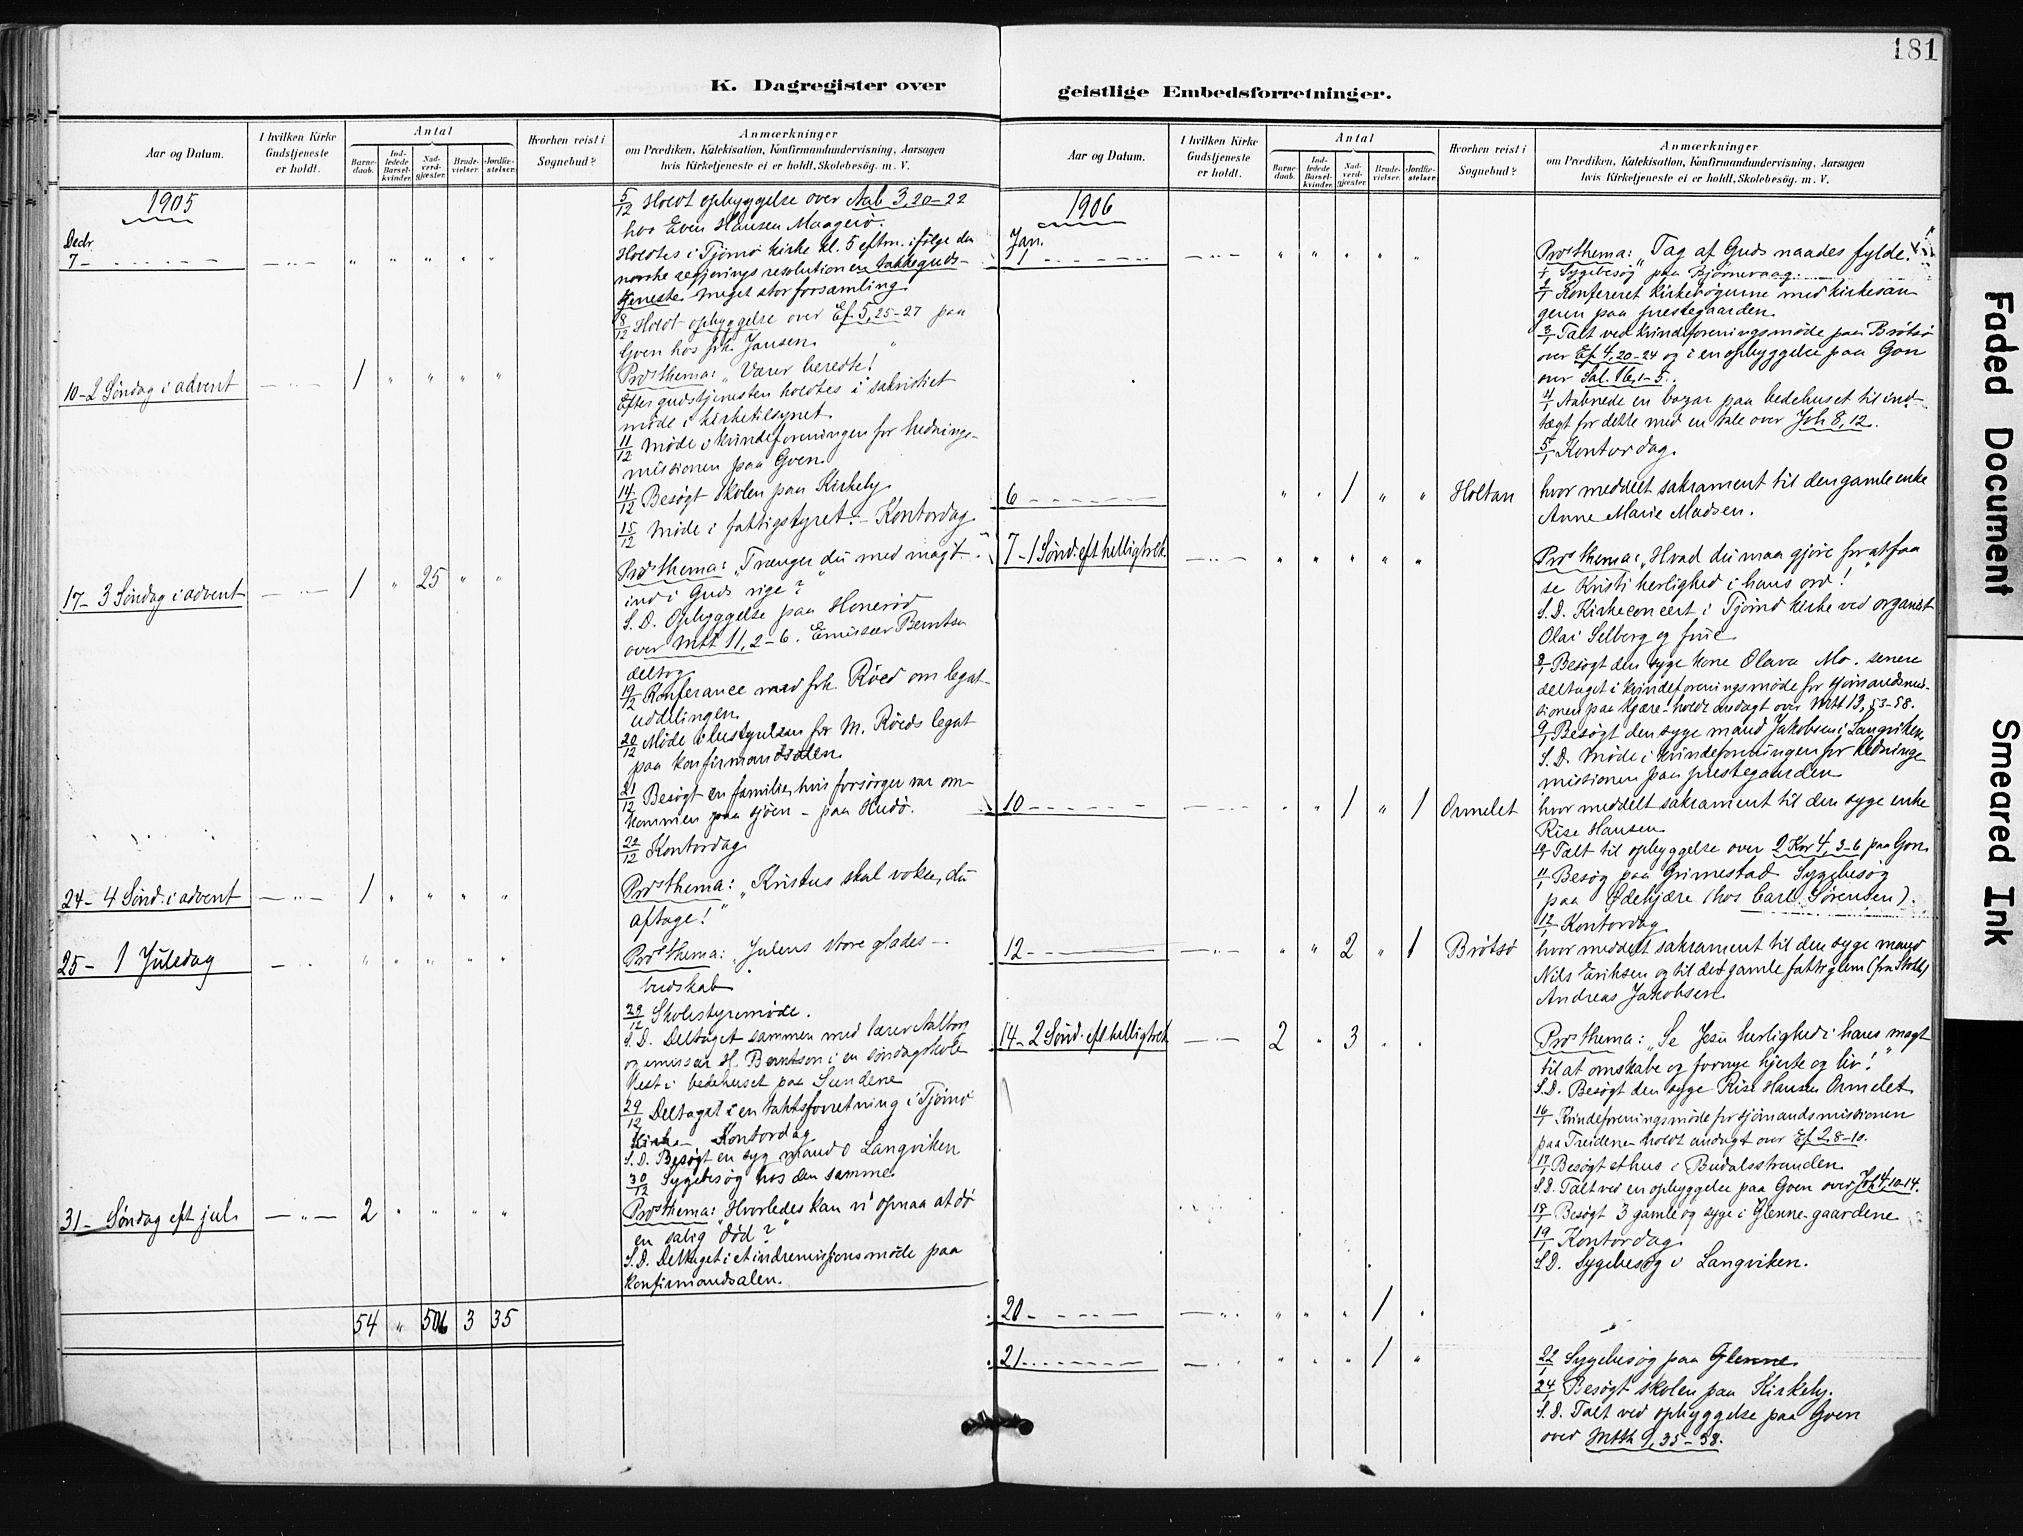 181
K. Dagregister over
Aar og Datum.
I hvilken Kirke Gudstjeneste er holdt.
Antal
Barne-daab.
Ind-ledede Barsel-kvinder.
Nad-verd-gjæster.
Brude-vielser.
Jordfæ-stelser.
Hvorhen reist i Sognebud?
Anmærkninger
om Prædiken, Katekisation, Konfirmandundervisning, Aarsagen
hvis Kirketjeneste ei er holdt, Skolebesøg. m. V.
1905
5/12 Holdt opbyggelse over Aab 3,20-22
hos Even Hansen Maagerø.
Decbr.
7 - " " " " "
Holdtes i Tjømø kirke kl. 5 eftm. ifølge den
norske regjerings resolution en takkeguds-
tjeneste. Meget stor forsamling.
8/12 Holdt opbyggelse over Ef. 5,25-27 paa
Goen hos frk. Jansen.
10 - 2 Søndag i advent — " — 1 " " " "
Præs thema: "Værer beredte!
Efter gudstjenesten holdtes i sakristiet
møde i kirketilsynet.
11/12 Møde i kvindeforeningen for hednings-
missionen paa Goen.
14/12 Besøgt skolen paa Kirkeby
15/12 Møde i fattigstyret. - Kontordag.
17 - 3 Søndag i advent — " — 1 " 25 " "
Præs thema: "Trænger du med magt
ind i Guds rige?"
S.D. Opbyggelse paa Honerød
over Mtt 11,2-6. Emissær Berntsen
deltog.
19/12 Konferance med frk. Röed om legat-
uddelingen.
20/12 Møde i bestyrelsen for M. Röeds legat
paa konfirmandsalen.
21/12 Besøgt en familie, hvis forsørger var om-
kommen paa sjøen - paa Hudø.
22/12 Kontordag
24 - 4 Sønd. i advent — " — 1 " " " "
Præs thema: "Kristus skal vokse, du
aftage!"
25 - 1 Juledag — " " " " "
Præs thema: "Julens store glædes-
budskab"
28/12 Skolestyremøde.
S.D. Deltaget sammen med lærer Aalbon
og emissær H. Berntsen i en søndagskole
fest i bedehuset paa Sundene
29/12 Deltaget i en takstforretning i Tjømø
Kirke - Kontordag
S.D. Besøgt en syg mand i Langviken
30/12 Sygebesøg hos den samme
31 - Søndag eft jul. — " — 2 " " " "
Præs thema: "Hvorledes kan vi opnaa at dø
en salig død?"
S.D. Deltaget i et indremissionsmøde paa
Konfirmandsalen.
54 " 506 3 35
geistlige Embedsforretninger.
Aar og Datum.
I hvilken Kirke Gudstjeneste er holdt.
Antal
Barne-daab.
Ind-ledede Barsel-kvinder.
Nad-verd-gjæster.
Brude-vielser.
Jordfæ-stelser.
Hvorhen reist i Sognebud?
Anmærkninger
om Prædiken, Katekisation, Konfirmandundervisning, Aarsagen
hvis Kirketjeneste ei er holdt, Skolebesøg. m. V.
1906
Jan.
1 — " — " " " " "
Præs thema: "Tag af Guds naades fylde!"
1/1 Sygebesøg paa Bjørnevaag.
2/1 Konfereret Kirkebøgerne med kirkesan-
geren paa prestegaarden.
3/1 Talt ved kvindeforeningsmøde paa Brøtsø
over Ef. 4,20-24 og i en opbyggelse paa Goen
over Sal. 16,1-5.
4/1 Aabnede en bazar paa bedehuset til ind-
tægt for dette med en tale over Joh 8,12.
5/1 Kontordag.
6 " " 1 " " Holtan
hvor meddelt sakrament til den gamle enke
Anne Marie Madsen.
7 - 1 Sønd. eft helligtrek. — " — " " " " "
Præs thema: "Hvad du maa gjøre for at faa
se Kristi herlighed i hans ord!"
S.D. Kirkeconcert i Tjømø kirke ved organist
Olai Selberg og frue
8/1 Besøgt den syge kone Olava Mo. senere
deltaget i kvindeforeningsmøde for sjømandsmis-
sionen paa Kjære - holdt andagt over Mtt 13,53-58.
9/1 Besøgt den syge mand Jakobsen i Langviken
S.D. Møde i kvindeforeningen for hedninge-
missionen paa prestegaarden
10 — " — " " 1 " 1 Ormelet
hvor meddelt sakrament til den syge enke
Rise Hansen
10/1 Talt til opbyggelse over 2 Kor 4,3-6 paa Goen
11/1 Besøg paa Grimestad Sygebesøg
paa Ødekjære (hos Carl Sørensen).
12/1 Kontordag
12 — " — " " 2 " 1 Brøtsø
hvor meddelt sakrament til den syge mand
Nils Eriksen og til det gamle fattiglem
Andreas Jakobsen
14 - 2 Sønd. eft helligtrek — " — 2 " 3 " "
Præs thema: "Se Jesu herlighed i hans magt
til at omskabe og fornye hjerte og liv!"
S.D. Besøgt den syge Rise Hansen Ormelet
16/1 Kvindeforeningsmøde for sjømandsmissionen
paa Treidene holdt andagt over Ef 2,8-10.
17/1 Besøgt et hus i Budalsstranden
S.D. Talt ved en opbyggelse paa Goen over Joh 4,10-14.
18/1 Besøgt 3 gamle og syge i Glenne-gaardene
19/1 Kontordag.
S.D. Sygebesøg i Langviken.
20 — " — " " " 1 "
21 — " — " " " 1 "
22/1 Sygebesøg paa Glenne.
24/1 Besøgt skolen paa Kirkeby.
S.D. Talt ved opbyggelse paa Goen
over Mtth 9,35-38.
Faded Document
Smeared Ink